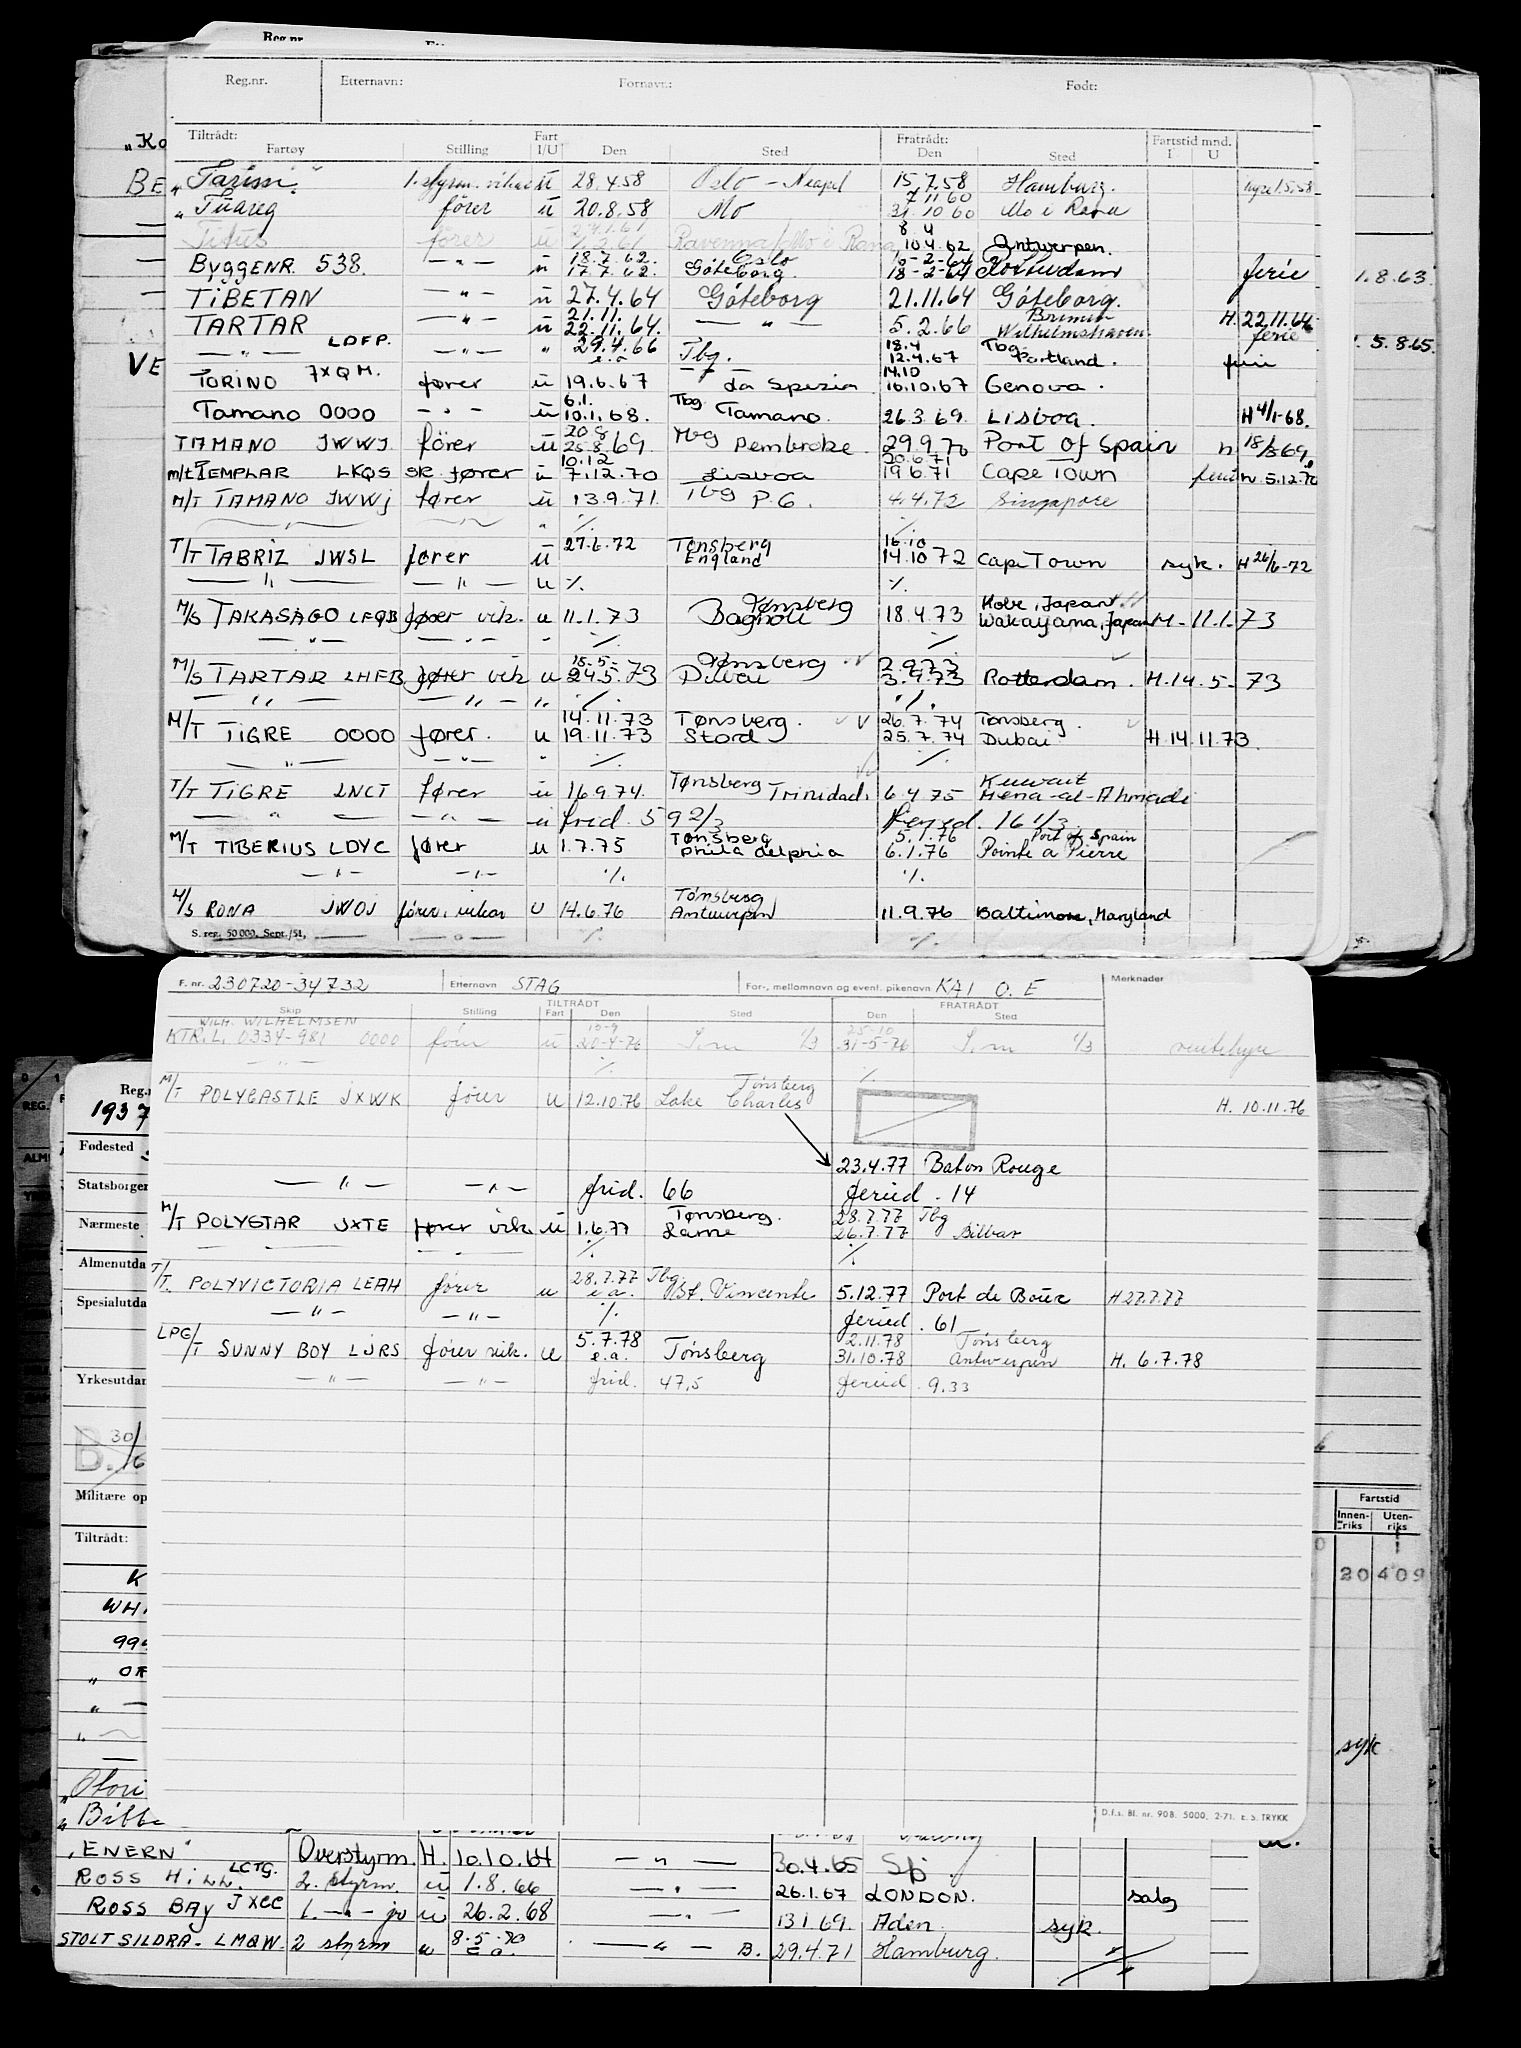 Reg.nr. Etternavn: Fornavn: Født:
Tiltrådt: Fartøy Stilling Fart I/U Den Sted Fratrådt: Den Sted Fartstid mnd. I U
"Ko
BE
VE
Oslo - Neapel 15.7.58 Hamburg.
28.4.58
7 11 60
"Tuareg fører ü 20.8.58 Mo 31.10 60 Mo i Rana
Titus fører ü Ravenna / Mo i Rana 10 4.62 Antwerpen.
18.7.62. Oslo
BYGGENR. 538. —"— ü 17.7.62. Göteborg. 18-2-64 Rotterdam ferie 1.8.63.
TIBETAN —"— ü 27.4.64 Göteborg 21.11.64 Göteborg.
21.11. Bremen
TARTAR —"— ü 22.11.64. —"— 5.2.66 Wilhelmshaven. H. 22.11.64 ferie 5.8.65.
—"— LDFP. —"— " 29.4.66 e.a Tbg. 18.4 12.4.67 Tbg. Portland. ferie
14.10
TORINO JXQM. fører ü 19.6.67 La Spezia 16.10.67 Genova.
6.1.
Tamano 0000 —"— ü 10.1.68. Tbg Tamano. 26.3.69. Lisboa. H 4/1-68.
TAMANO JWWJ. fører ü 25.8.69. Pembroke. 29.9.70 Port of Spain
10.12 20.6.71
m/t TEMPLAR LKQS sk. fører ü 7.12.70 Lisboa 19.6.71 Cape Town ferie
M/T TAMANO JWWJ fører ü 13.9.71. Tbg P.G. 4.4.72 Singapore
" ./. ./.
27.6.72 Tønsberg 16.10
T/T TABRIZ JWSL fører ü England 14.10 72 Cape Town syk. H 26/6-72
—"— —"— u ./. ./.
Tønsberg Kobe, Japan
M/S TAKASAGO LFQB fører vik. u 11.1.73 Bagnoli 18.4.73 Wakayama, Japan H - 11.1.73
—"— —"— ./. ./.
Tønsberg 2.9.73
M/S TARTAR LHFB fører vik u 24.5.73 Dubai 3.9.73 Rotterdam. H.14.5-73
—"— —"— " ./. ./.
14.11.73 Tønsberg. 26.7.74 Tønsberg.
M/T TIGRE 0000 fører. u 19.11.73 Stord 25.7.74 Dubai H 14.11.73.
—"— —"— " ./. ./.
Tønsberg Kuwait
T/T TIGRE LNCT fører ü 16.9.74. Trinidad 6.4.75 Mena-al-Ahmadi
—"— —"— ü frid. 59 2/3 feried. 16 1/3
Tønsberg 5.1.76 Port of Spain
M/T TIBERIUS LDYC fører u 1.7.75 Philadelphia 6.1.76 Pointe a Pierre
—"— —"— ./. ./.
Tønsberg
RONA JWOJ fører, vikar u 14.6.76 Antwerpen 11.9.76 Baltimore, Maryland
S. reg. 50 000. Sept./51. —"— ./. ./.
F. nr. 230720-34732 Etternavn STAG For-, mellomnavn og event. pikenavn KAI O. E Merknader
TILTRÅDT FRATRÅDT
Skip Stilling Fart Den Sted Den Sted
WILH. WILHELMSEN 25-10
KTR.L. 0334-981 0000 fører ü 20-4-76 1/3 31-5-76 1/3
—"— ./. ./.
Tønsberg
M/T POLYCASTLE JXWK fører u 12.10.76 Lake Charles H. 10.11.76
23.4.77 Baton Rouge
—"— —"— frid. 66 feried. 14
Tønsberg. 28.7.77 Tbg
M/T POLYSTAR JXTE fører vik. ü 1.6.77 Larne 26.7.77 Bilbao
—"— —"— ./. ./.
28.7.77 Tbg.
T/T. POLYVICTORIA LEAH fører u e.a. St. Vincente 5.12.77 Port de Bouc H 27.7.77
—"— —"— ./. feried. 61
5.7.78 2.11.78 Tønsberg
LPG/T SUNNY BOY LJRS fører vik. u e.a. Tønsberg 31.10.78 Antwerpen H. 6.7.78
—"— —"— frid. 47,5 feried. 9.33
D.f.s. Bl. nr. 908. 5000. 2-71. E. S. TRYKK
Reg.n
1937
Fødested
Statsborger
Nærmeste
Almenutda
Spesialutda
Yrkesutdan
B. 30/
Militære op
Tiltrådt:
K
WH
99
" OR
Fartstid
Innen-riks Uten-riks
20 409
syk
"Otori
"Bibb
"ENERN" Overstyrm. H. 10.10.64 —"— 30.4.65 Sj.
ROSS HILL. LCTG. 2. styrm. ü 1.8.66 —"— 26.1.67 LONDON. salg
ROSS BAY JXCC 1. —"— ju ü 26.2.68 —"— 13.1.69. Aden. syk.
STOLT SILDRA - LMQW. 2 styrm u 8.5.70 e.a. —"— B. 29.4.71 Hamburg.